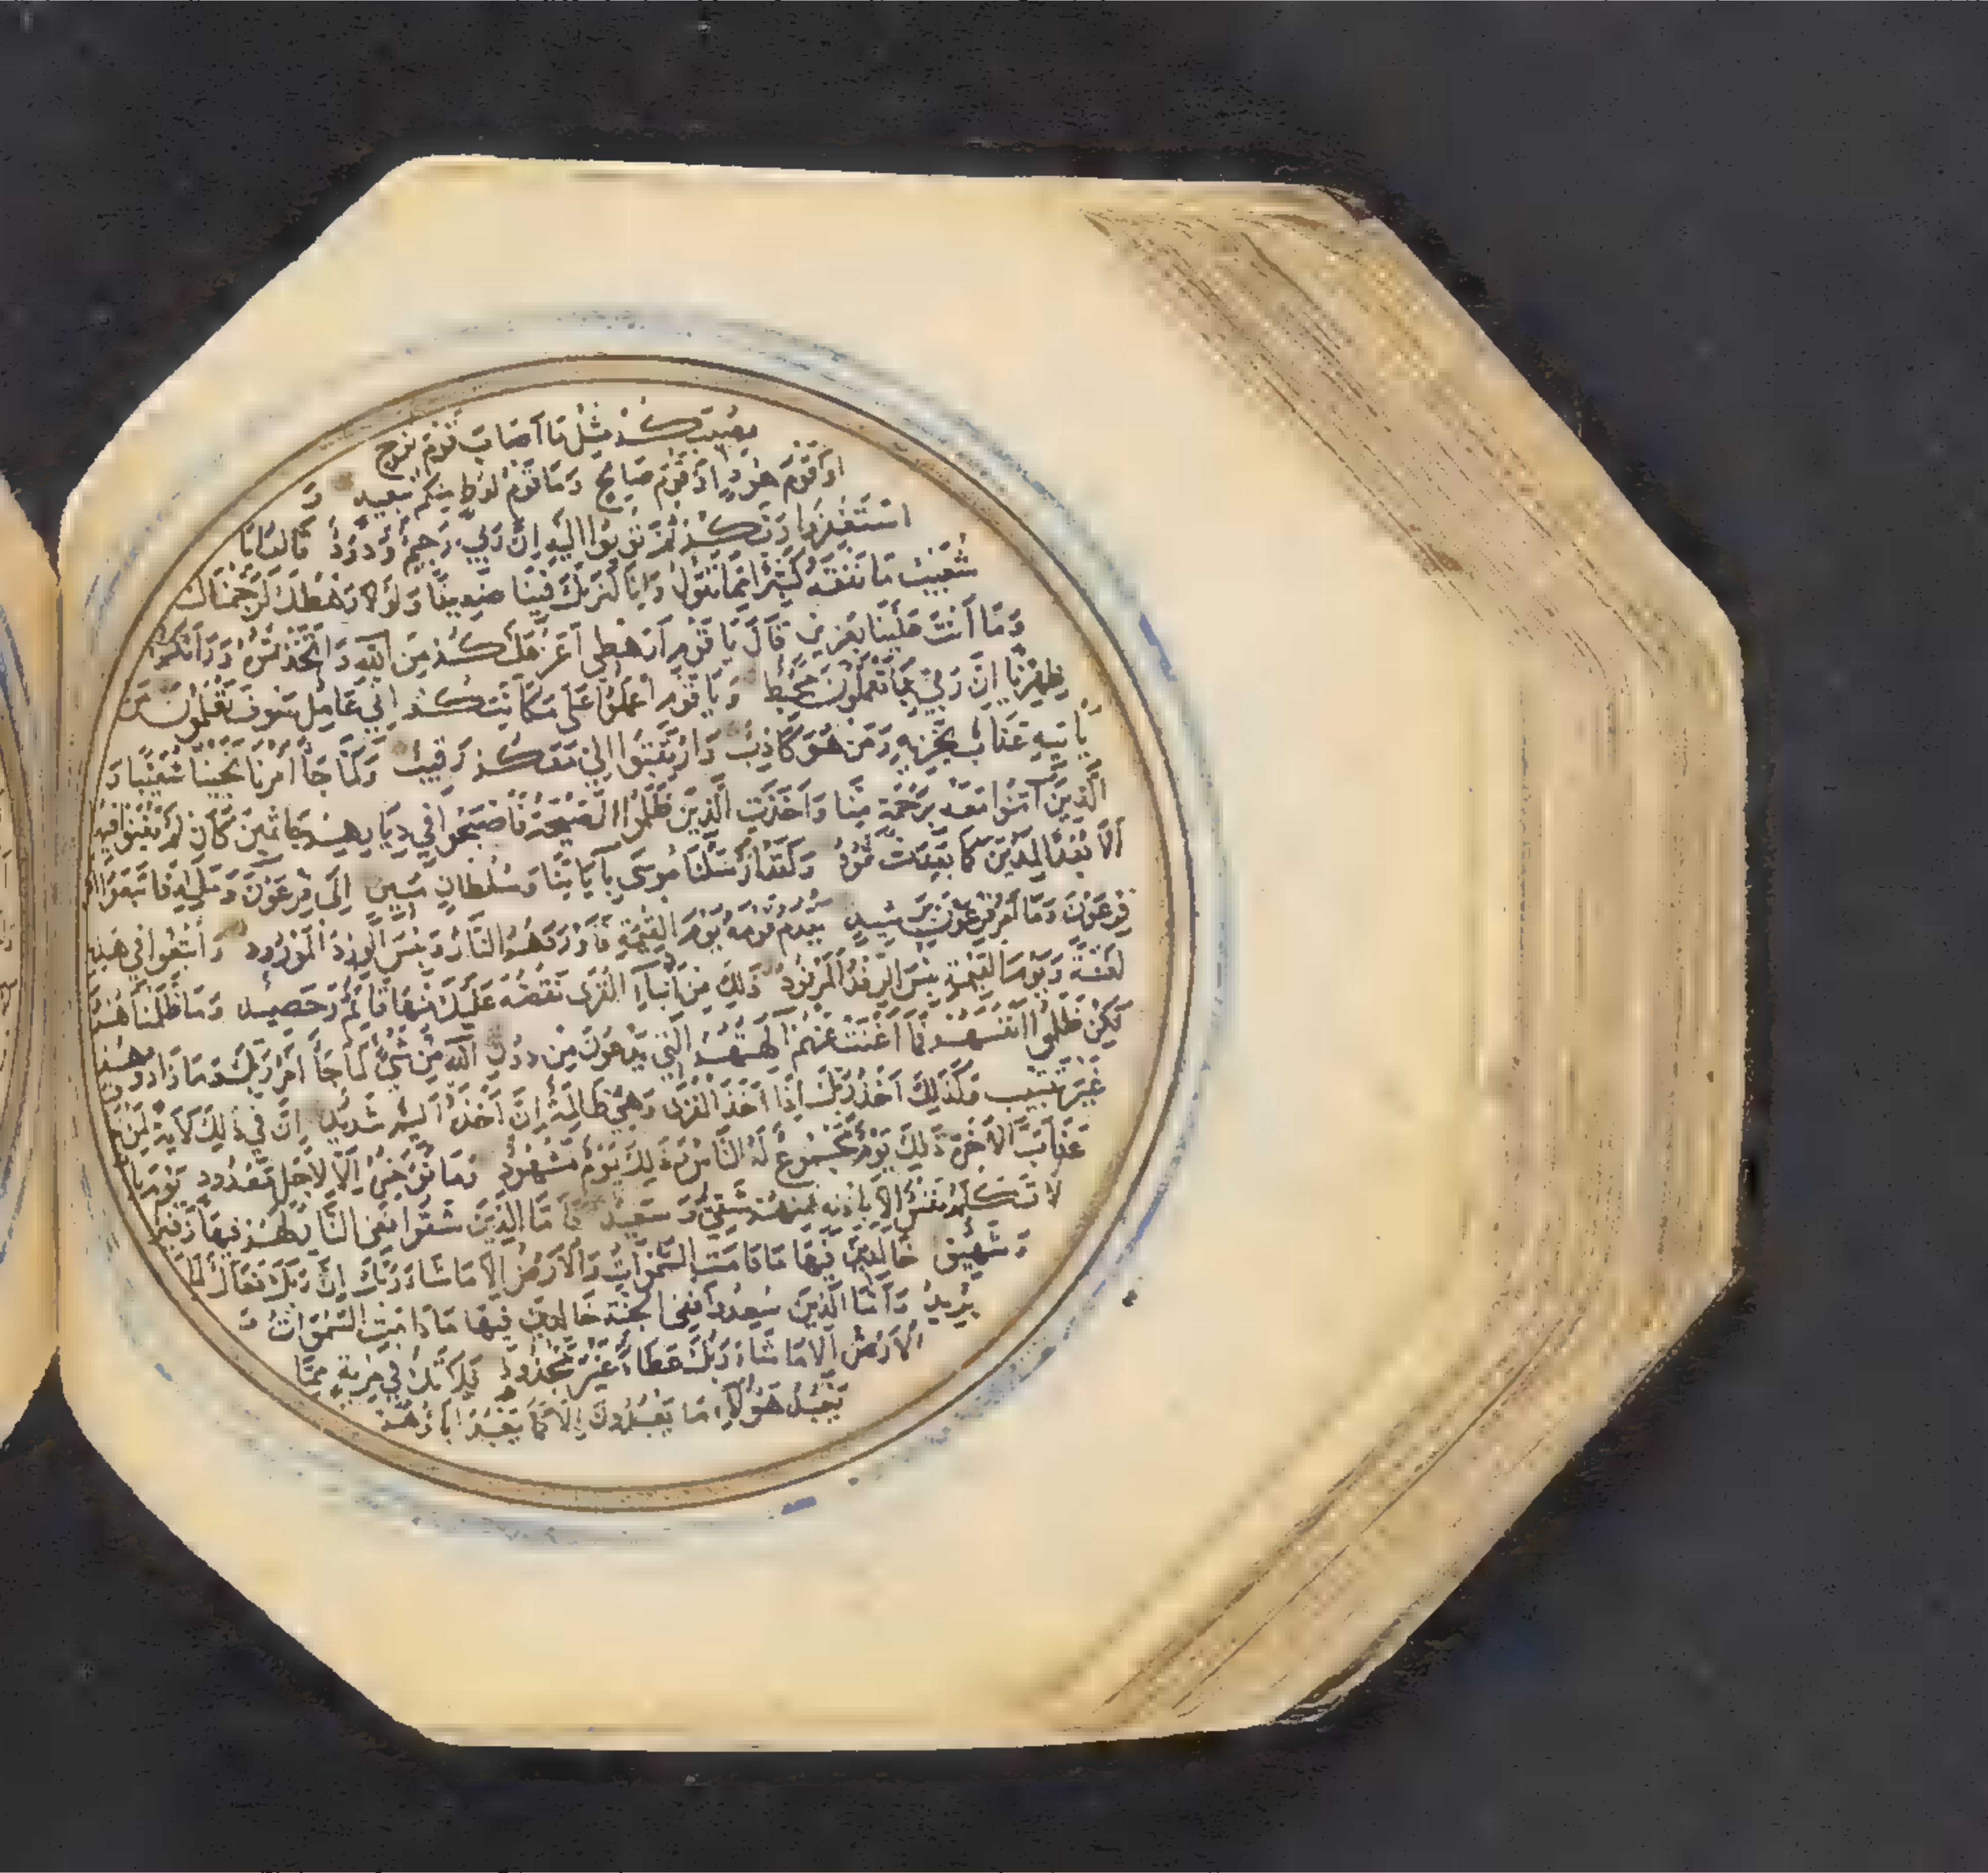 يُصِيبَكُمْ مِثْلُ مَا أَصَابَ قَوْمَ نُوحٍ
أَوْ قَوْمَ هُودٍ أَوْ قَوْمَ صَالِحٍ وَمَا قَوْمُ لُوطٍ مِنْكُمْ بِبَعِيدٍ وَ
اسْتَغْفِرُوا رَبَّكُمْ ثُمَّ تُوبُوا إِلَيْهِ إِنَّ رَبِّي رَحِيمٌ وَدُودٌ قَالُوا يَا
شُعَيْبُ مَا نَفْقَهُ كَثِيرًا مِمَّا تَقُولُ وَإِنَّا لَنَرَيكَ فِينَا ضَعِيفًا وَلَوْلَا رَهْطُكَ لَرَجَمْنَاكَ
وَمَا أَنْتَ عَلَيْنَا بِعَزِيزٍ قَالَ يَا قَوْمِ أَرَهْطِي أَعَزُّ عَلَيْكُمْ مِنَ اللَّهِ وَاتَّخَذْتُمُوهُ وَرَاءَكُمْ
ظِهْرِيًّا إِنَّ رَبِّي بِمَا تَعْمَلُونَ مُحِيطٌ وَيَا قَوْمِ اعْمَلُوا عَلَى مَكَانَتِكُمْ إِنِّي عَامِلٌ سَوْفَ تَعْلَمُونَ مَنْ
يَأْتِيهِ عَذَابٌ يُخْزِيهِ وَمَنْ هُوَ كَاذِبٌ وَارْتَقِبُوا إِنِّي مَعَكُمْ رَقِيبٌ وَلَمَّا جَاءَ أَمْرُنَا نَجَّيْنَا شُعَيْبًا وَ
الَّذِينَ آمَنُوا مَعَهُ بِرَحْمَةٍ مِنَّا وَأَخَذَتِ الَّذِينَ ظَلَمُوا الصَّيْحَةُ فَأَصْبَحُوا فِي دِيَارِهِمْ جَاثِمِينَ كَأَنْ لَمْ يَغْنَوْا فِيهَا
أَلَا بُعْدًا لِمَدْيَنَ كَمَا بَعِدَتْ ثَمُودُ وَلَقَدْ أَرْسَلْنَا مُوسَى بِآيَاتِنَا وَسُلْطَانٍ مُبِينٍ إِلَى فِرْعَوْنَ وَمَلَئِهِ فَاتَّبَعُوا أَمْرَ
فِرْعَوْنَ وَمَا أَمْرُ فِرْعَوْنَ بِرَشِيدٍ يَقْدُمُ قَوْمَهُ يَوْمَ الْقِيمَةِ فَأَوْرَدَهُمُ النَّارَ وَبِئْسَ الْوِرْدُ الْمَوْرُودُ وَأُتْبِعُوا فِي هَذِهِ
لَعْنَةً وَيَوْمَ الْقِيمَةِ بِئْسَ الرِّفْدُ الْمَرْفُودُ ذَلِكَ مِنْ أَنْبَاءِ الْقُرَى نَقُصُّهُ عَلَيْكَ مِنْهَا قَائِمٌ وَحَصِيدٌ وَمَا ظَلَمْنَاهُمْ وَ
لَكِنْ ظَلَمُوا أَنْفُسَهُمْ فَمَا أَغْنَتْ عَنْهُمْ آلِهَتُهُمُ الَّتِي يَدْعُونَ مِنْ دُونِ اللَّهِ مِنْ شَيْءٍ لَمَّا جَاءَ أَمْرُ رَبِّكَ وَمَا زَادُوهُمْ
غَيْرَ تَتْبِيبٍ وَكَذَلِكَ أَخْذُ رَبِّكَ إِذَا أَخَذَ الْقُرَى وَهِيَ ظَالِمَةٌ إِنَّ أَخْذَهُ أَلِيمٌ شَدِيدٌ إِنَّ فِي ذَلِكَ لَآيَةً لِمَنْ خَافَ
عَذَابَ الْآخِرَةِ ذَلِكَ يَوْمٌ مَجْمُوعٌ لَهُ النَّاسُ وَذَلِكَ يَوْمٌ مَشْهُودٌ وَمَا نُؤَخِّرُهُ إِلَّا لِأَجَلٍ مَعْدُودٍ يَوْمَ يَأْتِ
لَا تَكَلَّمُ نَفْسٌ إِلَّا بِإِذْنِهِ فَمِنْهُمْ شَقِيٌّ وَسَعِيدٌ فَأَمَّا الَّذِينَ شَقُوا فَفِي النَّارِ لَهُمْ فِيهَا زَفِيرٌ
وَشَهِيقٌ خَالِدِينَ فِيهَا مَا دَامَتِ السَّمَوَاتُ وَالْأَرْضُ إِلَّا مَا شَاءَ رَبُّكَ إِنَّ رَبَّكَ فَعَّالٌ لِمَا
يُرِيدُ وَأَمَّا الَّذِينَ سُعِدُوا فَفِي الْجَنَّةِ خَالِدِينَ فِيهَا مَا دَامَتِ السَّمَوَاتُ وَ
الْأَرْضُ إِلَّا مَا شَاءَ رَبُّكَ عَطَاءً غَيْرَ مَجْذُوذٍ فَلَا تَكُ فِي مِرْيَةٍ مِمَّا
يَعْبُدُ هَؤُلَاءِ مَا يَعْبُدُونَ إِلَّا كَمَا يَعْبُدُ آبَاؤُهُمْ